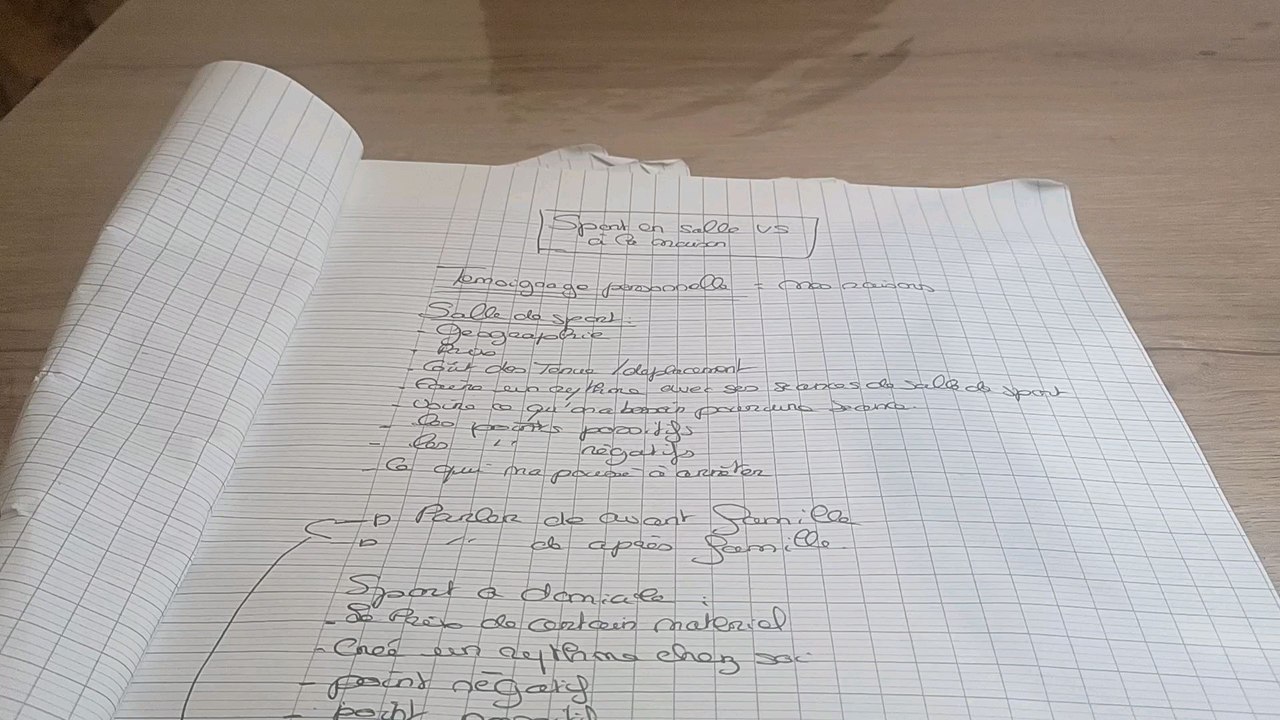 Sport en salle vs
à la maison
Témoignage personnelle = mes raisons
Salle de sport :
- Géographie
- Prix
- Coût des Tenue / déplacement
- un rythme avec ses séances de salle de sport
- ce qu'on a besoin pour une séance.
- Les points positifs
- Les '' négatifs
- Ce qui m'a poussé à arrêter
Parler de avant famille
'' de après famille
Sport a domicile :
- Prix de certain material
- Creé un rythme chez soi
- point négatif
- point positif